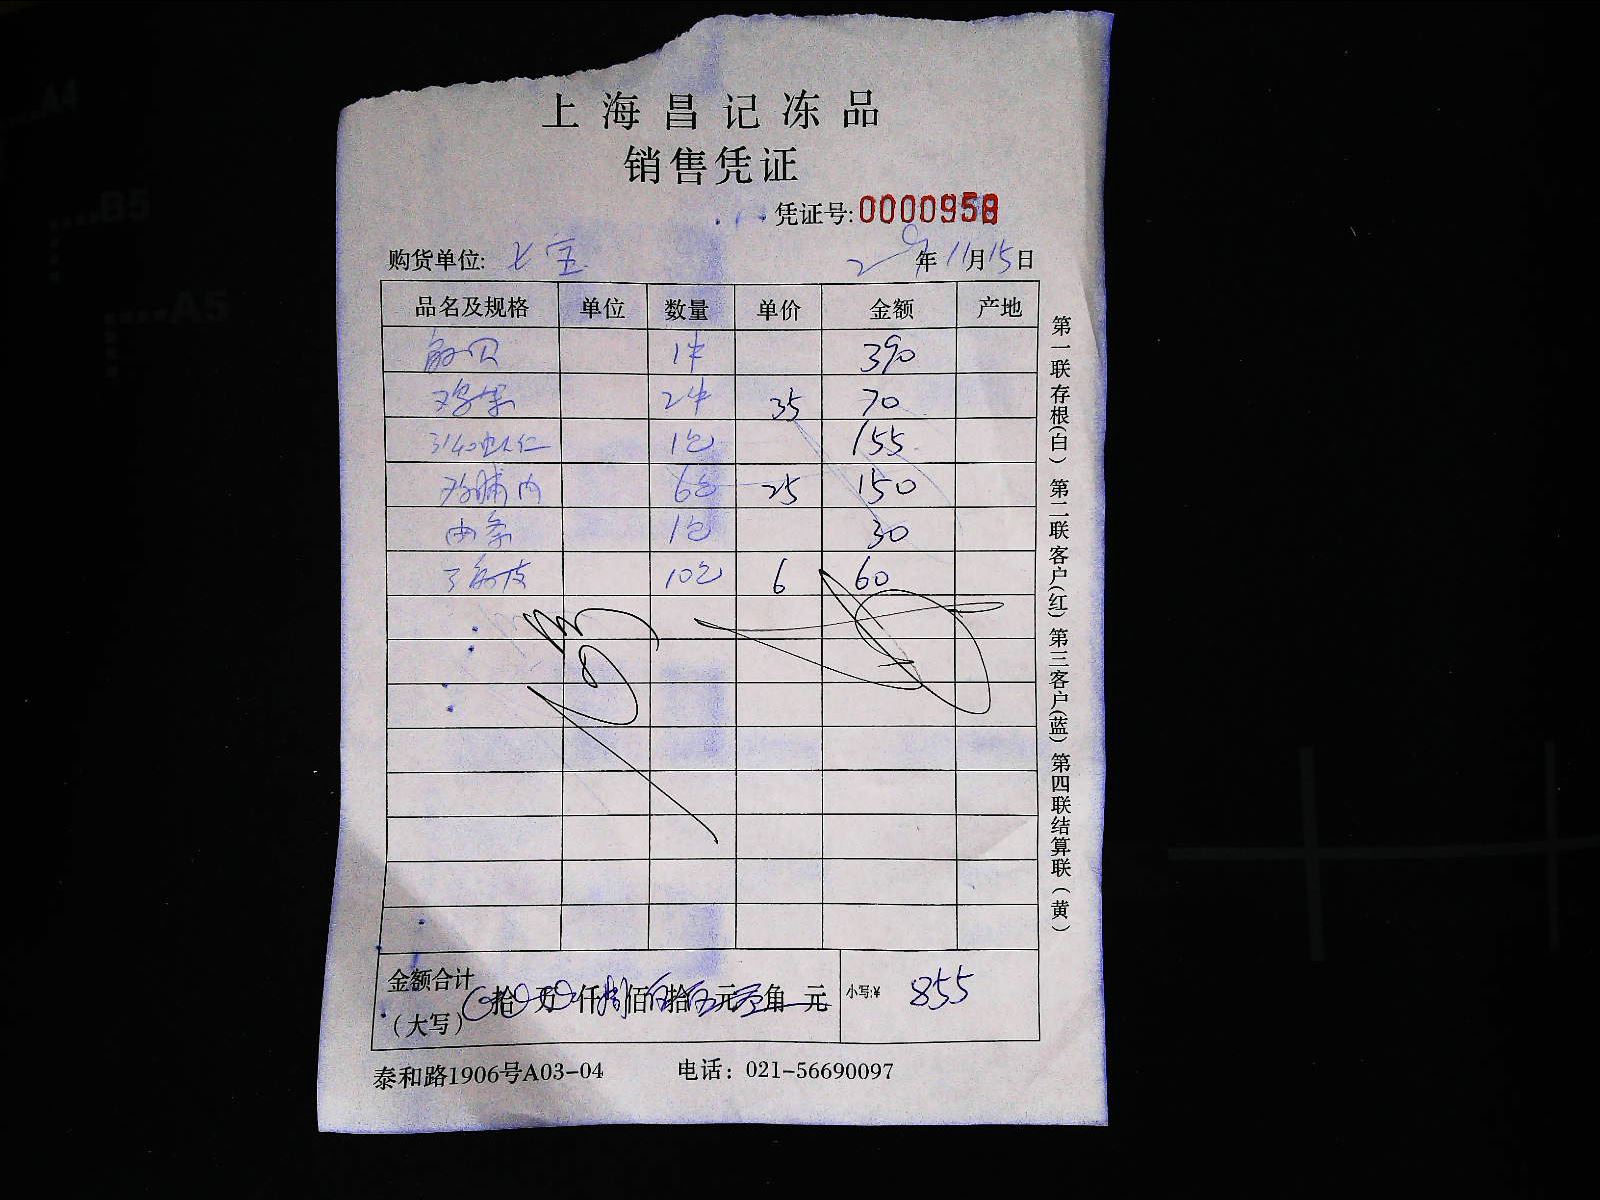 上海昌记冻品
销售凭证
凭证号:0000958
购货单位: 七宝 年11月15日
品名及规格 单位 数量 单价 金额 产地
1件 390
2件 35 70
3140虾仁 1包 155
鸡脯肉 6包 25 150
1包 30
10包 6 60
金额合计
(大写) 拾 万 仟捌佰伍拾伍元零角 元 小写:¥ 855
泰和路1906号A03-04 电话: 021-56690097
第一联存根(白) 第二联客户(红) 第三客户(蓝) 第四联结算联(黄)
A4
B5
A5